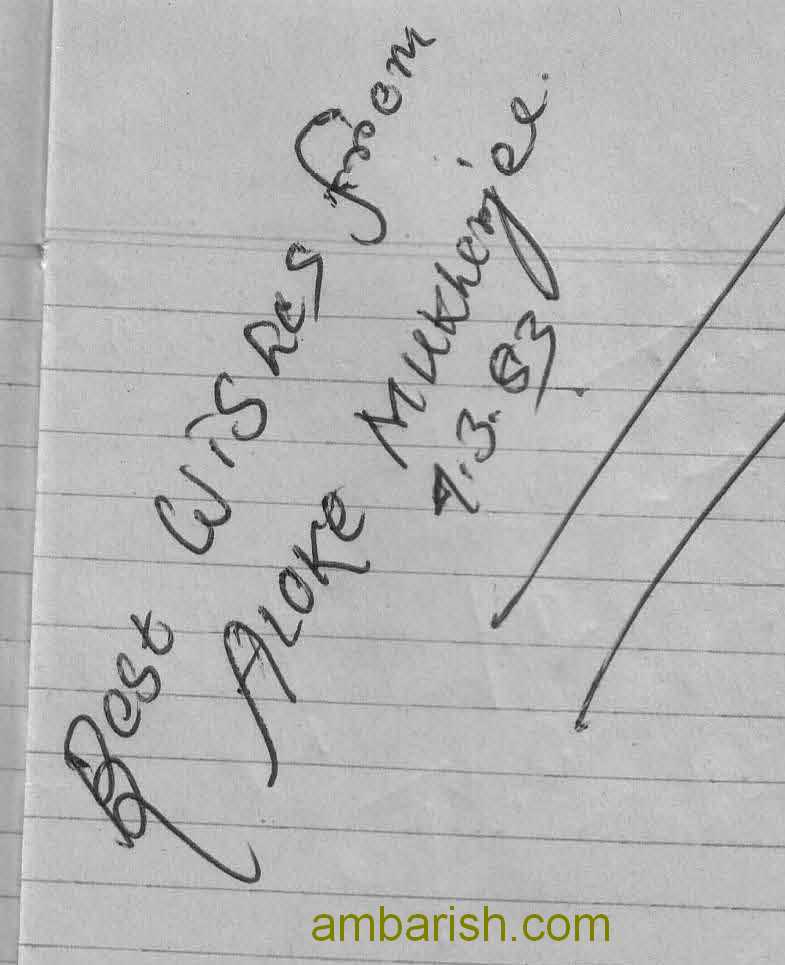 Best wishes from
Aloke Mukherjee.
9.3.83
ambarish.com